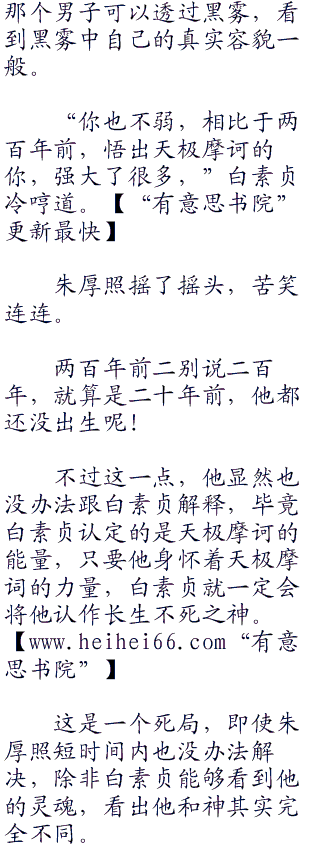 那个男子可以透过黑雾，看
到黑雾中自己的真实容貌一
般。
“你也不弱，相比于两
百年前，悟出天极摩诃的
你，强大了很多，”白素贞
冷哼道。【“有意思书院”
更新最快】
朱厚照摇了摇头，苦笑
连连。
两百年前二别说二百
年，就算是二十年前，他都
还没出生呢！
不过这一点，他显然也
没办法跟白素贞解释，毕竟
白素贞认定的是天极摩诃的
能量，只要他身怀着天极摩
词的力量，白素贞就一定会
将他认作长生不死之神。
【www.heihei66.com“有意
思书院”】
这是一个死局，即使朱
厚照短时间内也没办法解
决，除非白素贞能够看到他
的灵魂，看出他和神其实完
全不同。